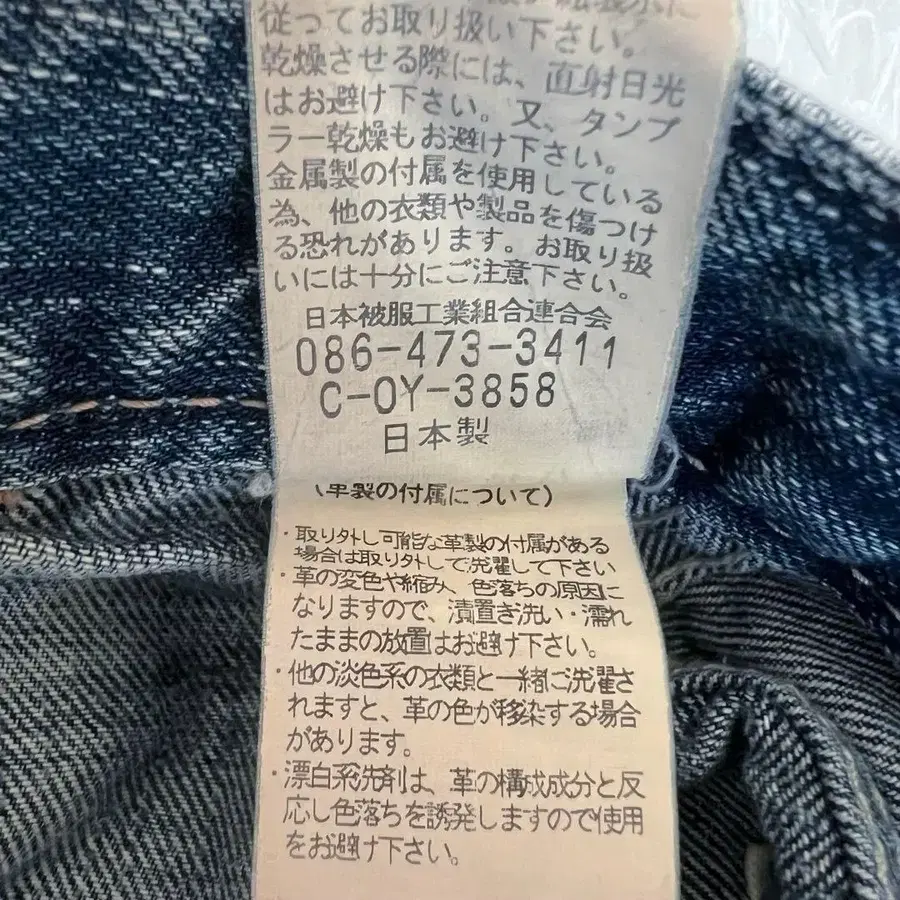 従ってお取り扱い下さい。
乾燥させる際には、直射日光
はお避け下さい。又、タンブ
ラー乾燥もお避け下さい。
金属製の付属を使用している
為、他の衣類や製品を傷つけ
る恐れがあります。お取り扱
いには十分にご注意下さい。
日本被服工業組合連合会
086-473-3411
C-OY-3858
日本製
(革製の付属について)
・取り外し可能な革製の付属がある
場合は取り外して洗濯して下さい
・革の変色や縮み、色落ちの原因に
なりますので、漬置き洗い・濡れ
たままの放置はお避け下さい。
・他の淡色系の衣類と一緒に洗濯さ
れますと、革の色が移染する場合
があります。
・漂白系洗剤は、革の構成成分と反
応し色落ちを誘発しますので使用
をお避け下さい。